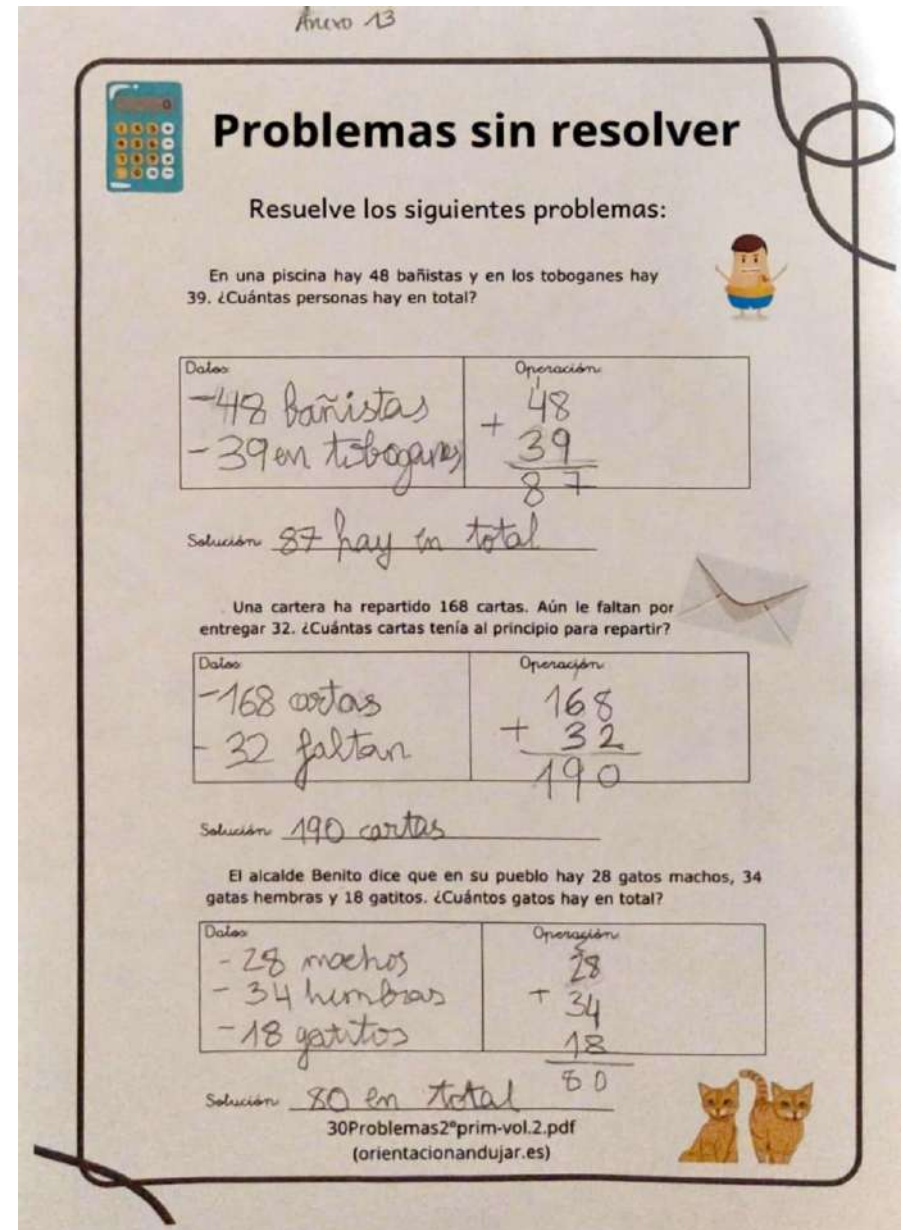 Anexo 13
Problemas sin resolver
Resuelve los siguientes problemas:
En una piscina hay 48 bañistas y en los toboganes hay
39. ¿Cuántas personas hay en total?
Datos:
Operación:
-48 bañistas
- 39 en toboganes
1
48
+ 39
87
Solución: 87 hay en total
Una cartera ha repartido 168 cartas. Aún le faltan por
entregar 32. ¿Cuántas cartas tenía al principio para repartir?
Datos:
Operación:
-168 cartas
- 32 faltan
168
+ 32
190
Solución: 190 cartas
El alcalde Benito dice que en su pueblo hay 28 gatos machos, 34
gatas hembras y 18 gatitos. ¿Cuántos gatos hay en total?
Datos:
Operación:
- 28 machos
- 34 hembras
- 18 gatitos
28
+ 34
18
80
Solución: 80 en total
30Problemas2ºprim-vol.2.pdf
(orientacionandujar.es)